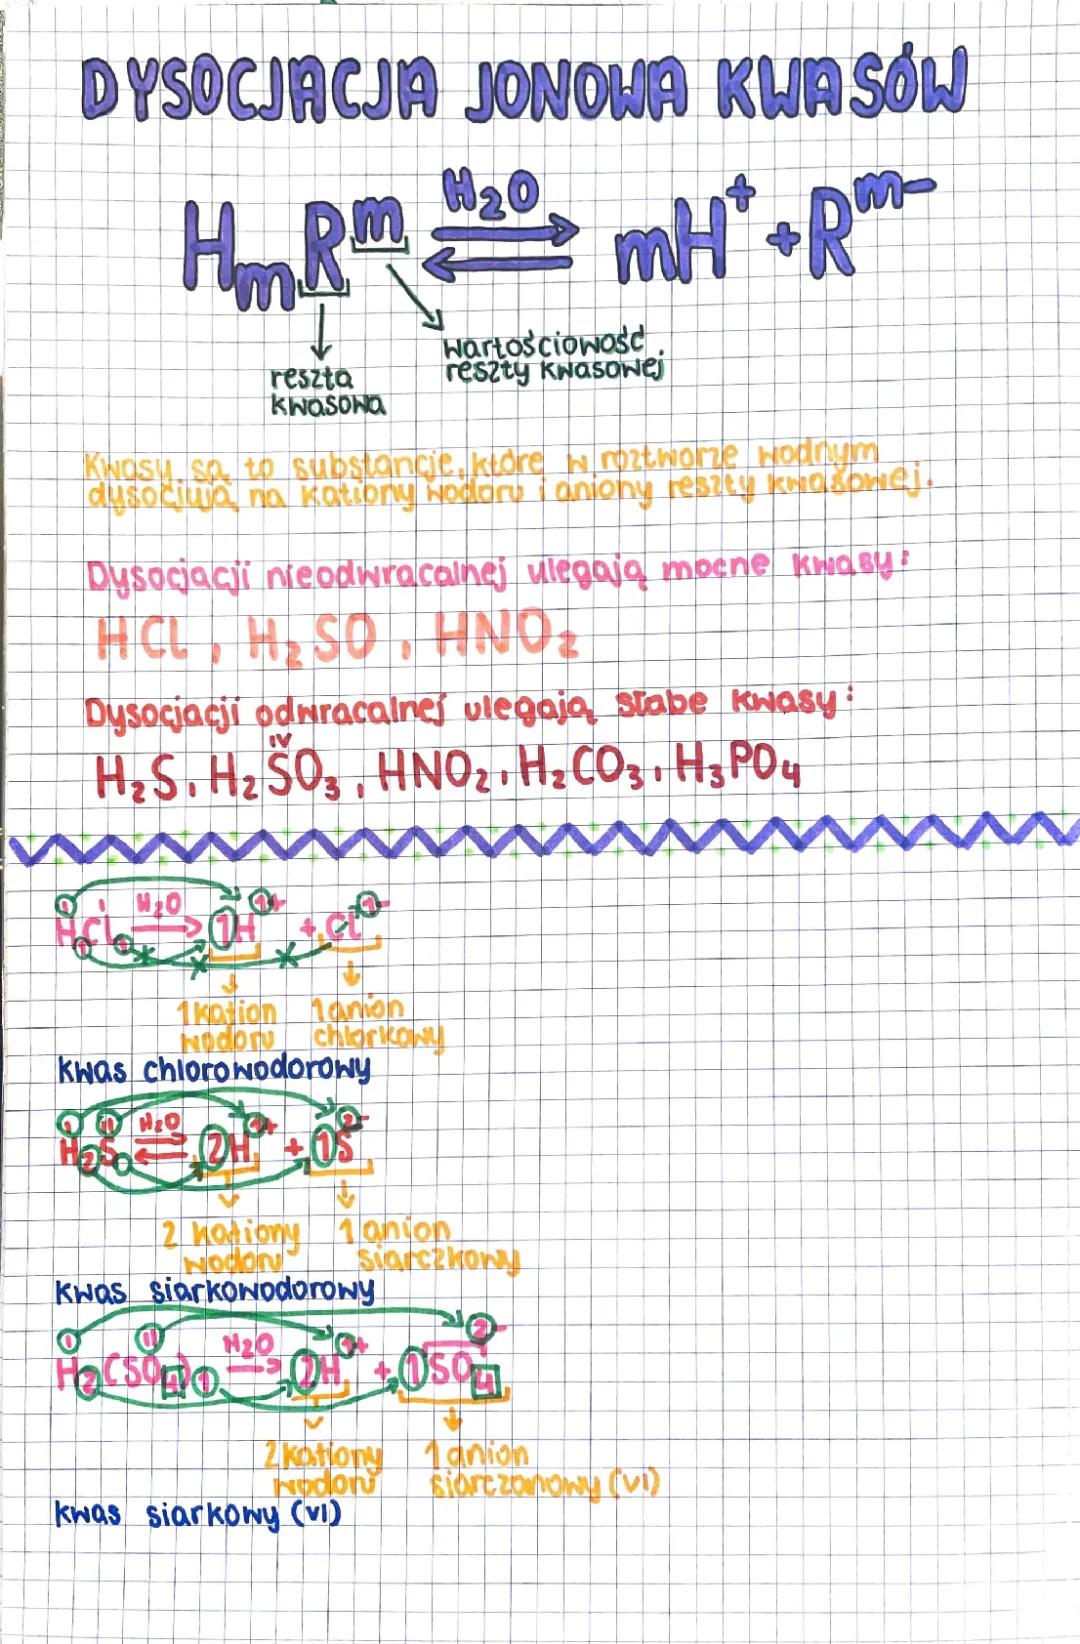 DYSOCJACJA JONOWA KWASÓW
HₘRᵐ ⇌ mH⁺ + Rᵐ⁻
H₂O
reszta
kwasowa
wartościowość
reszty kwasowej
Kwasy są to substancje, które w roztworze wodnym
dysocjują na kationy wodoru i aniony reszty kwasowej.
Dysocjacji nieodwracalnej ulegają mocne kwasy:
HCL, H₂SO, HNO₂
Dysocjacji odwracalnej ulegają słabe kwasy:
IV
H₂S, H₂SO₃, HNO₂, H₂CO₃, H₃PO₄
I I H₂O 1+ 1-
HCl → 1H + Cl
1 1
1 kation 1 anion
wodoru chlorkowy
kwas chlorowodorowy
I II H₂O 1+ 2-
H₂S ⇌ 2H + 1S
2 kationy 1 anion
wodoru siarczkowy
kwas siarkowodorowy
I II H₂O 1+ 2-
H₂(SO₄)₁ → 2H + 1SO₄
2 kationy 1 anion
wodoru siarczanowy (VI)
kwas siarkowy (VI)